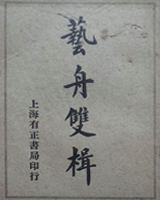 藝舟雙楫
上海有正書局印行